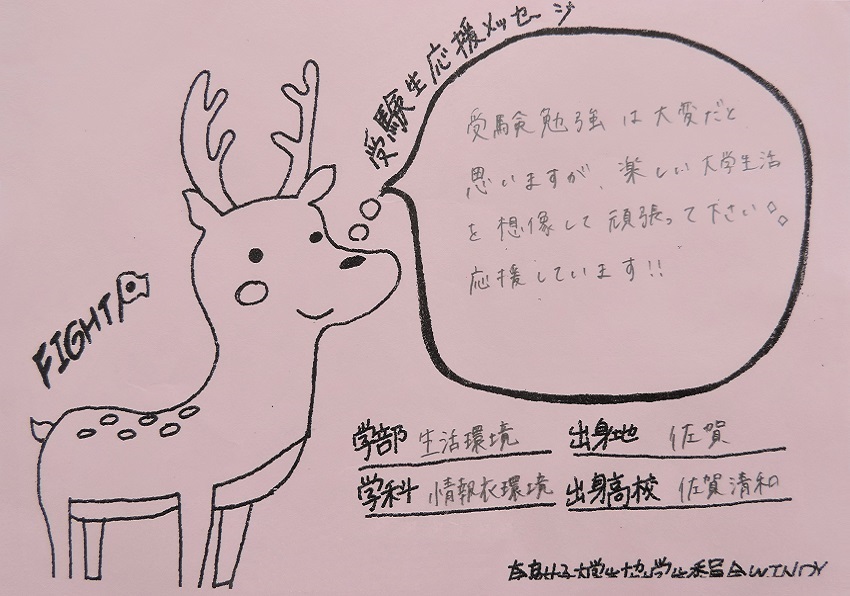 受験生応援メッセージ
受験勉強は大変だと
思いますが、楽しい大学生活
を想像して頑張って下さい
応援しています!!
FIGHT!
学部 生活環境
出身地 佐賀
学科 情報衣環境
出身高校 佐賀清和
奈良女子大学生協学生委員会WINDY